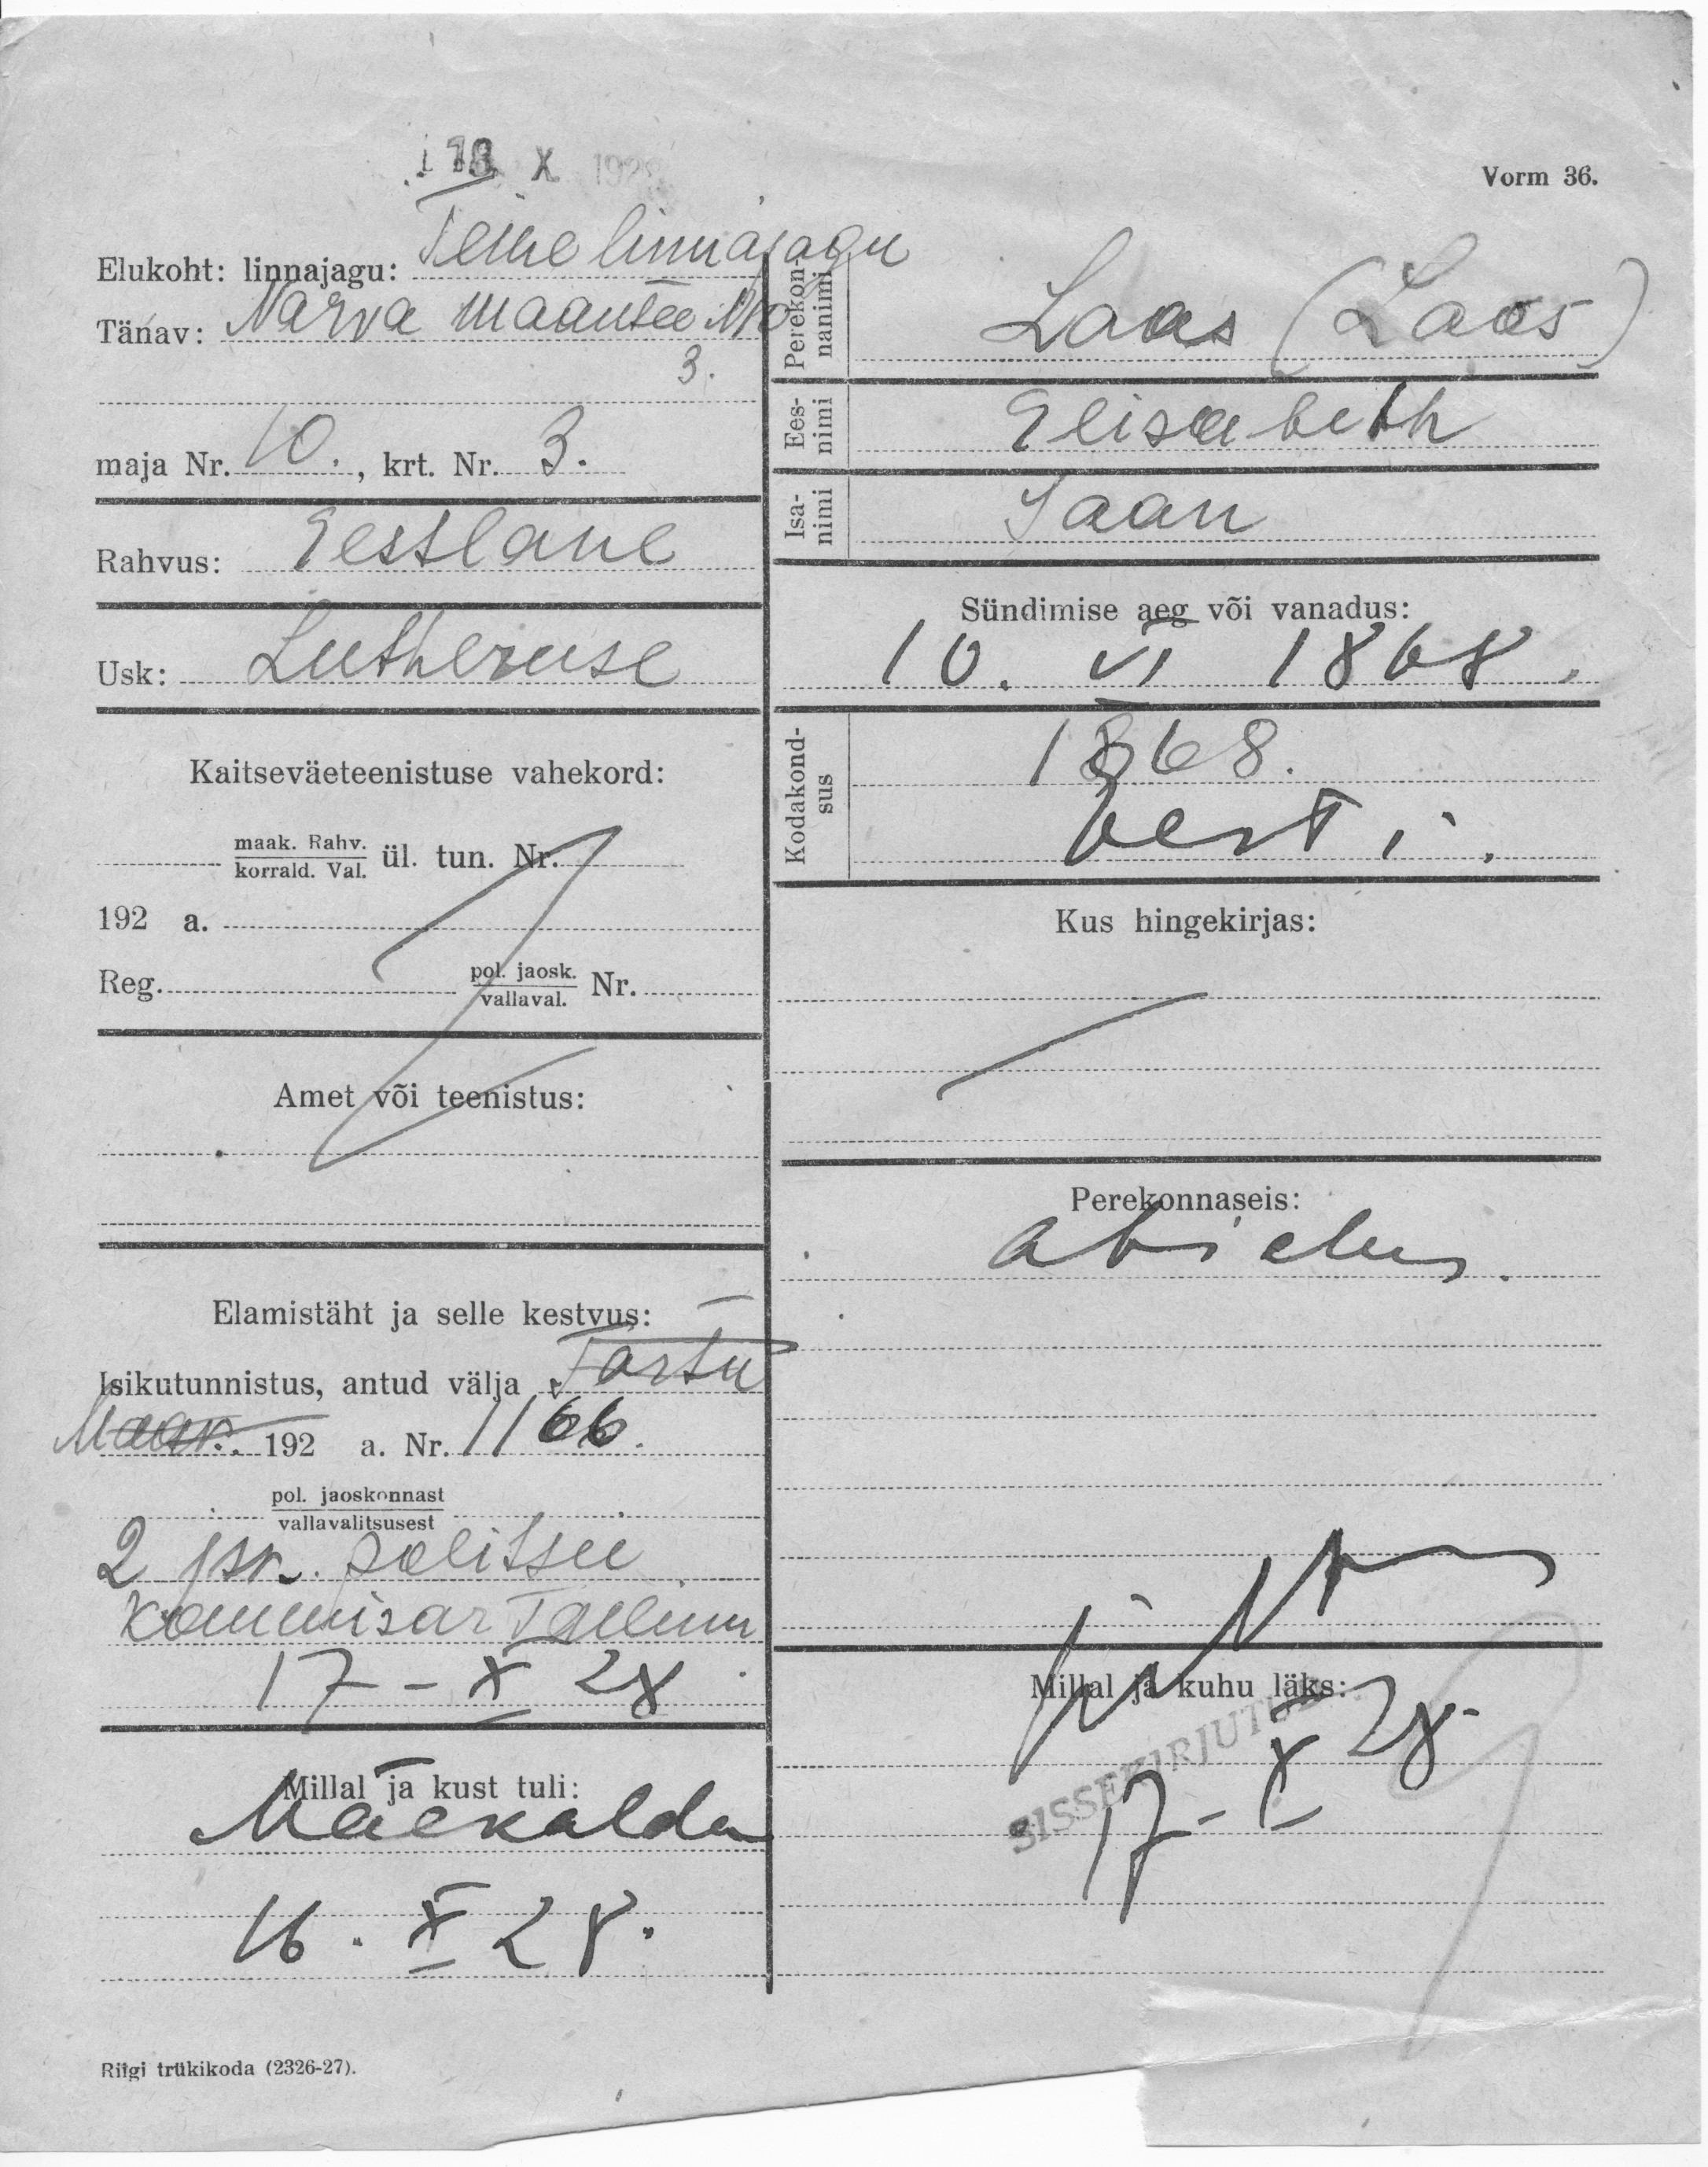 18 X 1928
Vorm 36.
Elukoht: linnajagu: Teine linnajagu
Tänav: Narva maantee No
3.
maja Nr. 10., krt. Nr. 3.
Rahvus: Eestlane
Usk: Lutheruse
Kaitseväeteenistuse vahekord:
maak. Rahv.
korrald. Val. ül. tun. Nr.
192 a.
Reg. pol. jaosk.
vallaval. Nr.
Amet või teenistus:
Elamistäht ja selle kestvus:
Isikutunnistus, antud välja Tartu
Maak. 192 a. Nr. 1166.
pol. jaoskonnast
vallavalitsusest
2 jsk. politsei
kommisar Tallinn
17 - X 28
Millal ja kust tuli:
Maekalda
16. X 28.
Riigi trükikoda (2326-27).
Perekon-
nanimi
Laas (Laos)
Ees-
nimi
Elisabeth
Isa-
nimi
Jaan
Sündimise aeg või vanadus:
10. VI 1868.
Kodakond-
sus
1868.
Eesti.
Kus hingekirjas:
Perekonnaseis:
abielus.
Millal ja kuhu läks:
SISSEKIRJUTUD
17 - X 28.